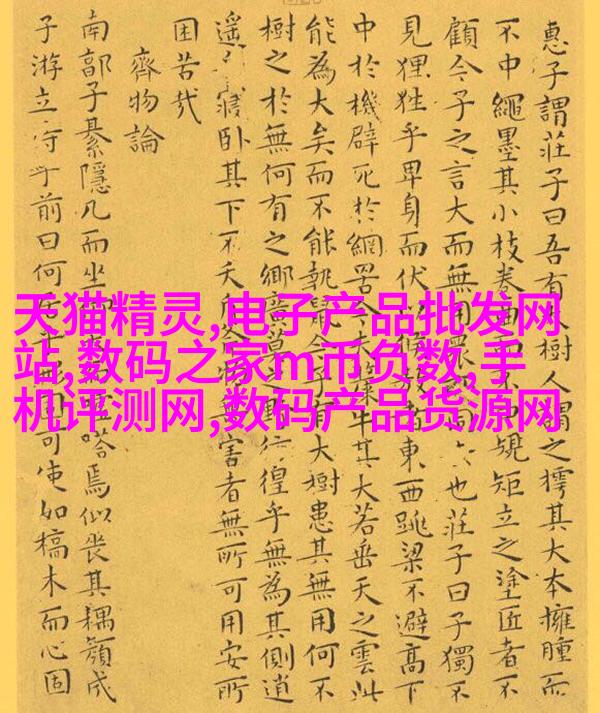 惠子謂莊子曰吾有樹人謂之樗其大本擁腫而
不中繩墨其小枝卷曲而不中規矩立之塗匠者不
顧今子之言大而無用眾也莊子曰子獨不
見狸狌乎卑身而伏候者東西跳梁不避高下
中於機辟死於網罟今夫牛其大若垂天之雲此
能為大矣而不能執鼠今子有大樹患其無用何不
樹之於無何有之鄉廣莫之彷徨乎無為其側逍
遙寢臥其下不夭斤物無害者無所可用安所
困苦哉
齊物論
南郭子綦隱几而坐嗒焉似喪其耦顏成
子游立侍乎前曰何居可使如槁木而心固
天猫精灵,电子产品批发网
站,数码之家m币负数,手
机评测网,数码产品货源网